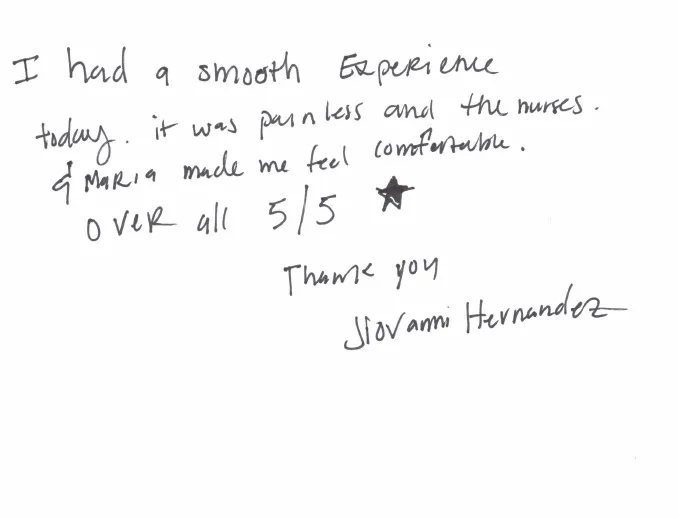 I had a smooth Experience
today. it was painless and the nurses.
& Maria made me feel comfortable.
over all 5/5 ★
Thank you
Jiovanni Hernandez